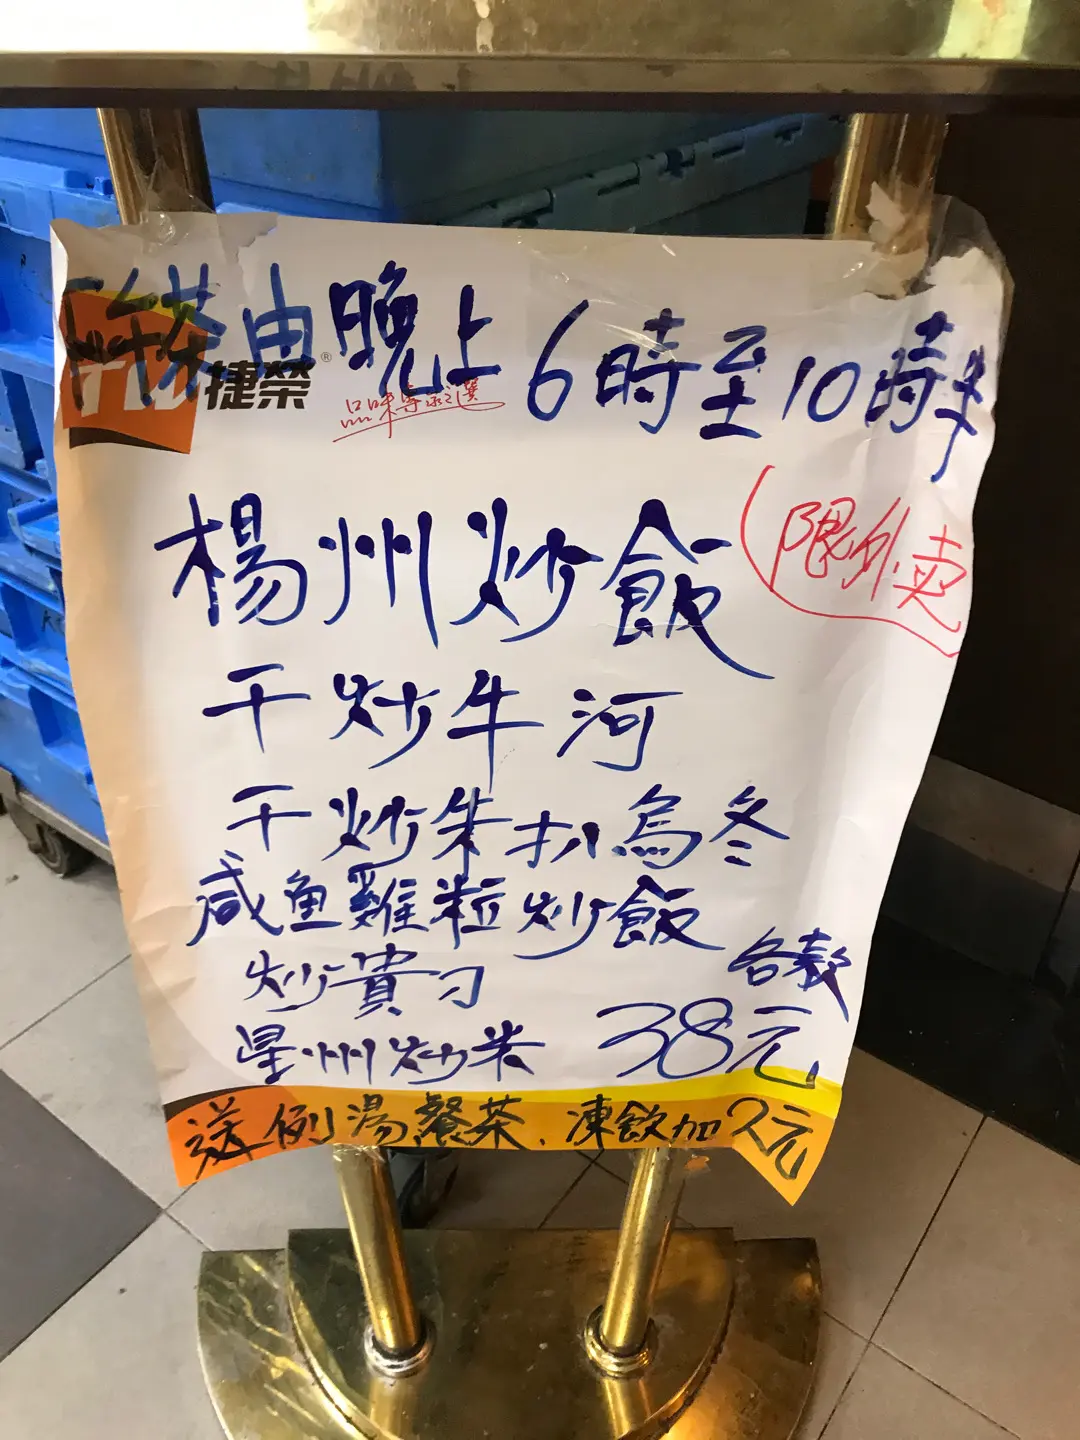 晚上6時至10時半
捷榮®
品味專家之選
楊州炒飯
(限外卖)
干炒牛河
干炒朱扒烏冬
咸鱼雞粒炒飯
炒貴刁
各款
星州炒米 38元
送例湯餐茶、凍飲加2元